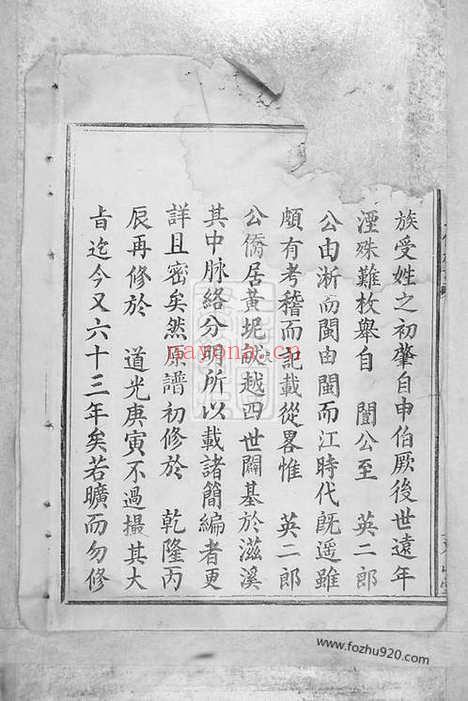 族受姓之初肇自申伯厥後世遠年
湮殊難枚舉自　闓公至　英二郎
公由淅而閩由閩而江時代旣遥雖
頗有考稽而記載從畧惟　英二郎
公僑居黃坭　越四世闢基於滋溪
其中脉絡分明所以載諸簡編者更
詳且密矣然原譜初修於　乾隆丙
辰再修於　道光庚寅不過撮其大
旨迄今又六十三年矣若曠而勿修
nayona.cn
www.fozhu920.com